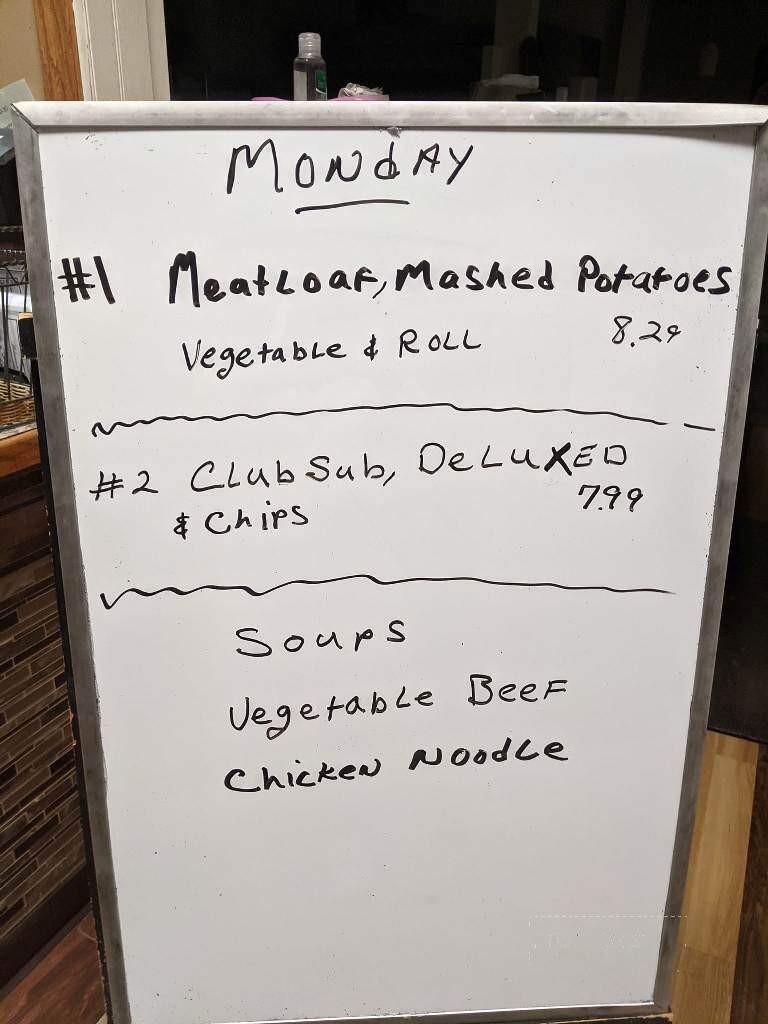 Monday
#1 Meatloaf, Mashed Potatoes
Vegetable & Roll 8.29
#2 Club Sub, DeLUXED
& Chips 7.99
Soups
Vegetable Beef
Chicken Noodle